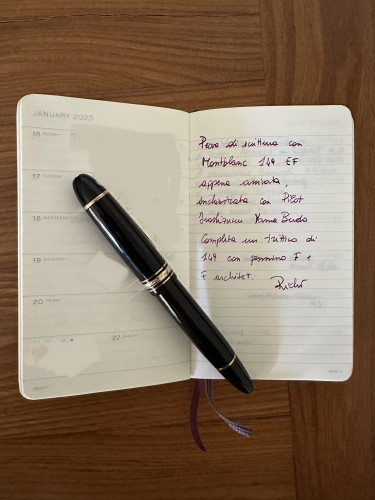 JANUARY 2023
16 MONDAY
17 TUESDAY
18 WEDNESDAY
19 THURSDAY
20 FRIDAY
22 SUNDAY
Prova di scrittura con
Montblanc 149 EF
appena arrivata,
inchiostrata con Pilot
Iroshizuku Yama Budo
Completa un trittico di
149 con pennino F e
F architet.